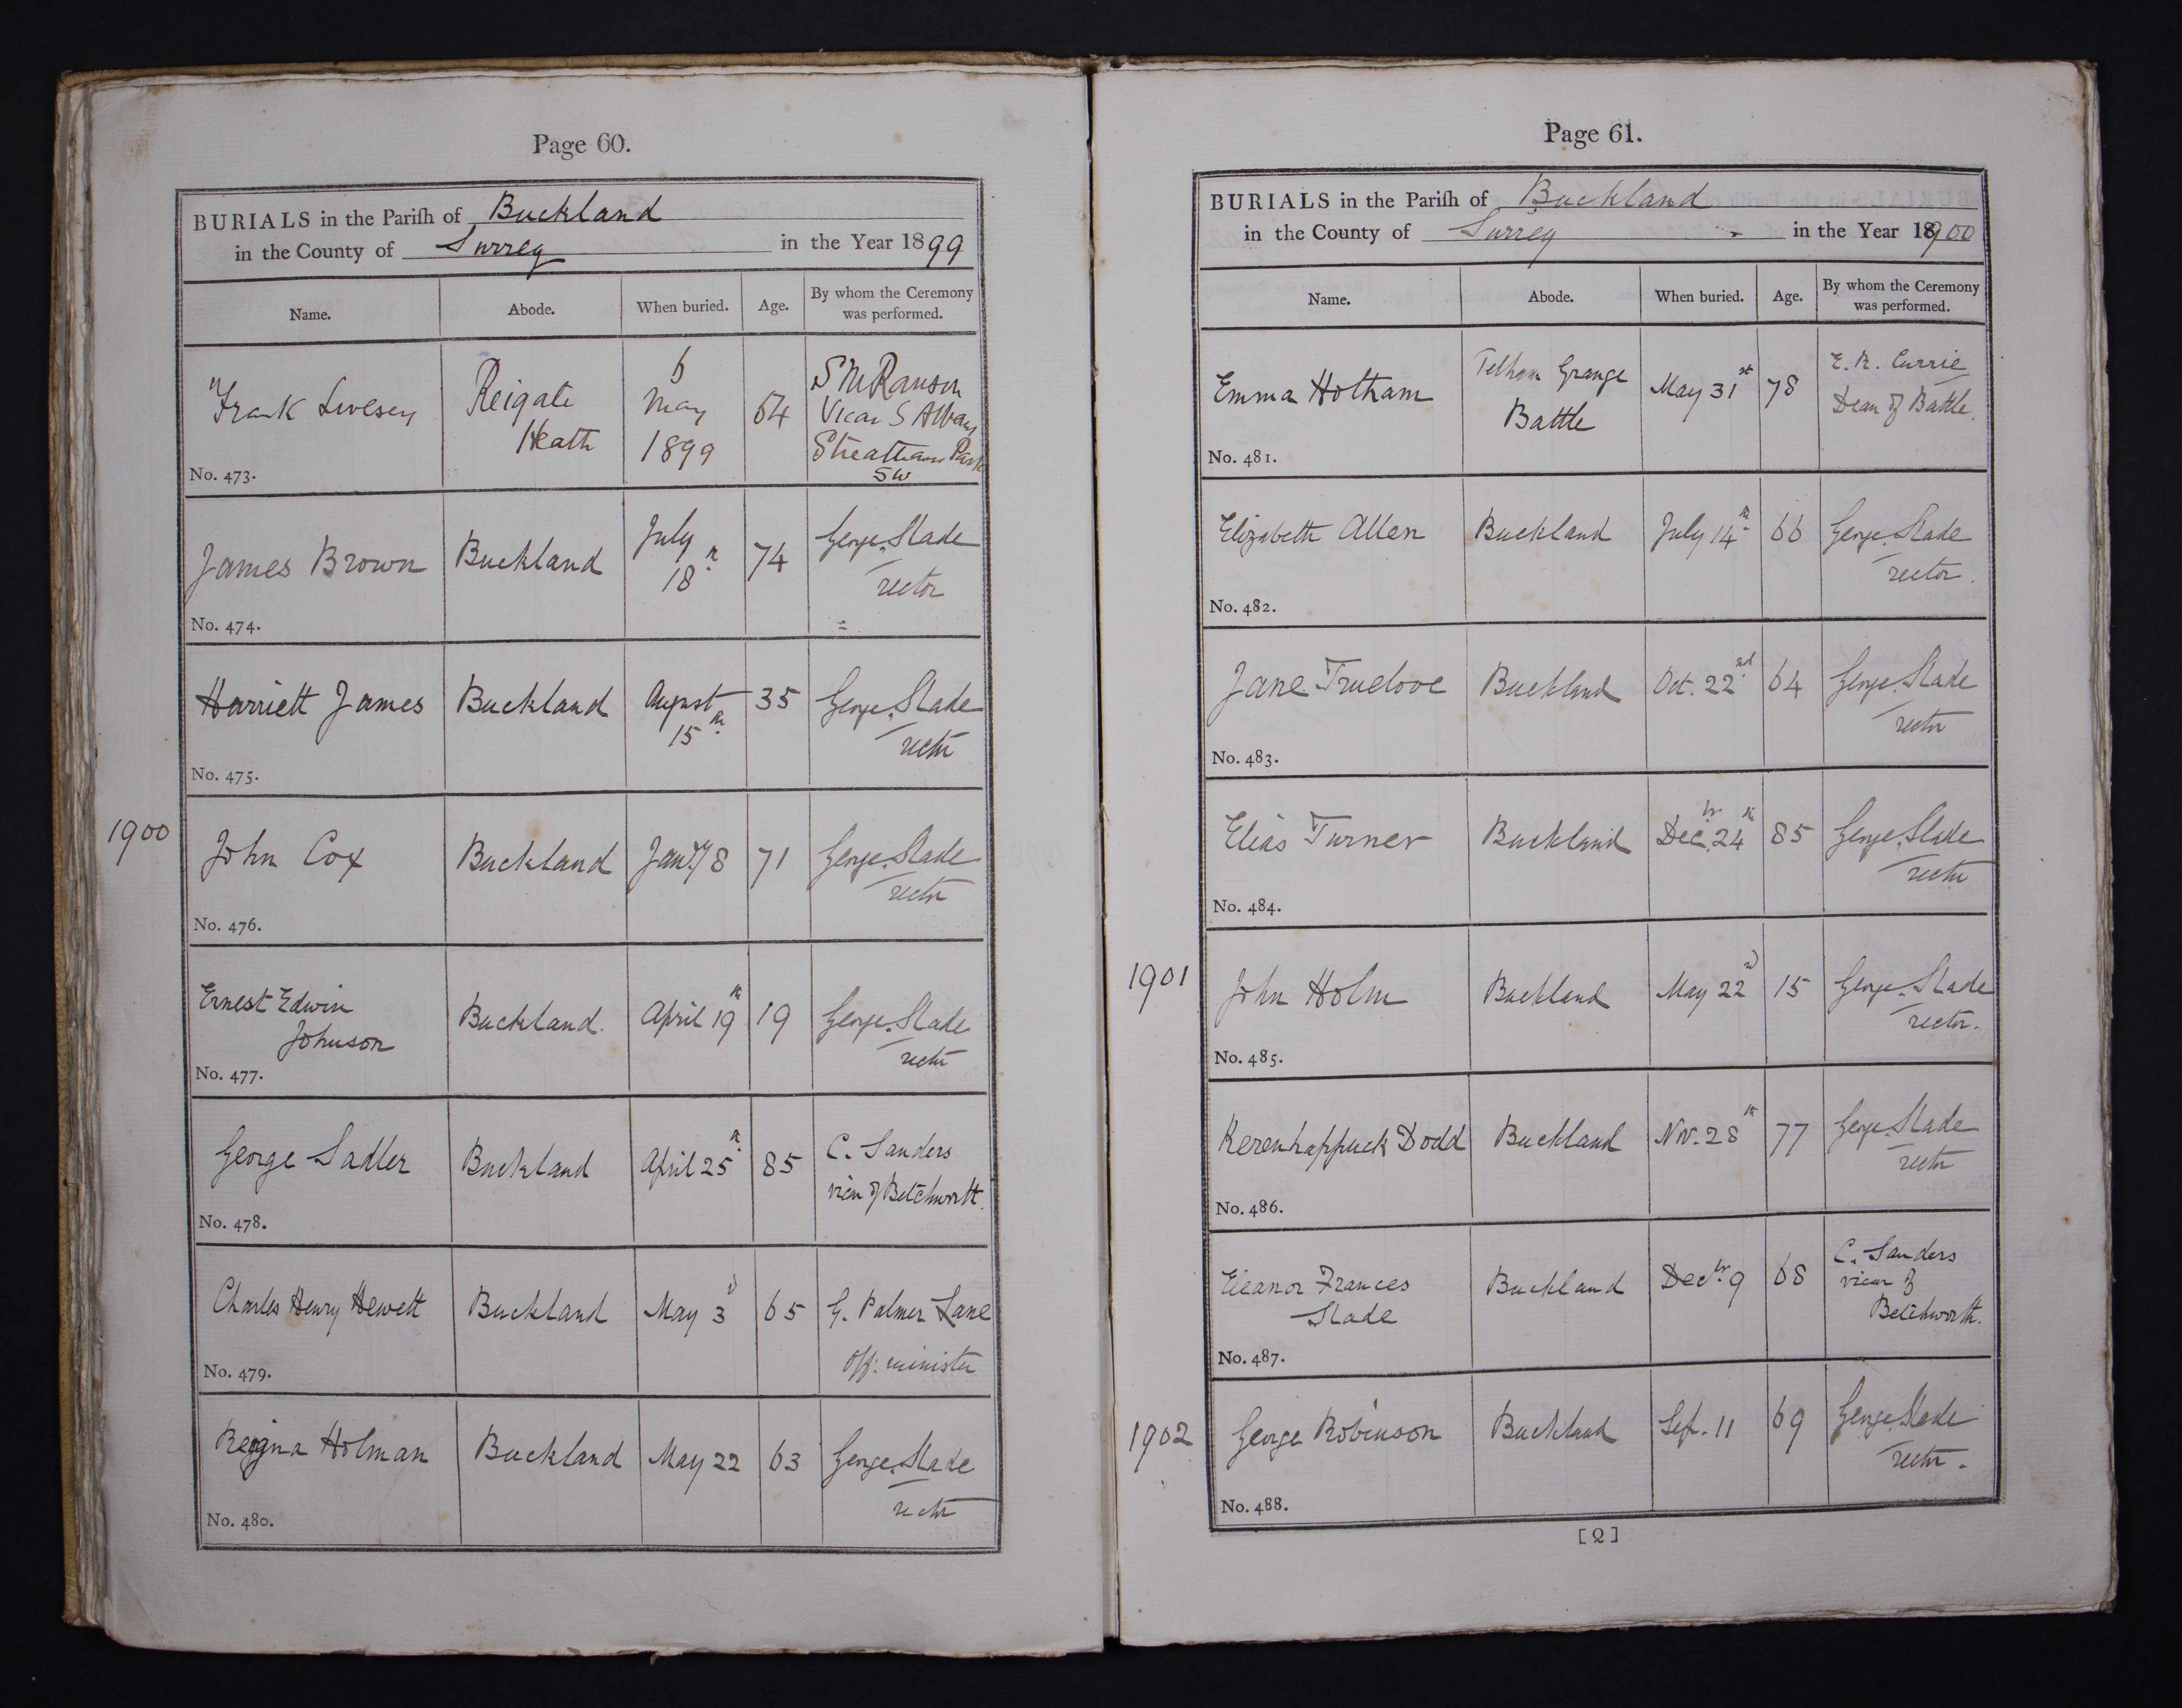 Page 60.
BURIALS in the Parish of Buckland
in the County of Surrey in the Year 1899
Name. Abode. When buried. Age. By whom the Ceremony was performed.
Frank Livesey Reigate Heath 6 May 1899 64 S M Ranson Vicar S Albans Streatham Park SW
No. 473.
James Brown Buckland July 18th 74 George Slade rector
No. 474.
Harriett James Buckland August 15th 35 George Slade rector
No. 475.
1900
John Cox Buckland Jany 8 71 George Slade rector
No. 476.
Ernest Edwin Johnson Buckland. April 19th 19 George Slade rector
No. 477.
George Sadler Buckland April 25th 85 C. Sanders vicar of Betchworth.
No. 478.
Charles Henry Hewett Buckland May 3d 65 G. Palmer Lane off: minister
No. 479.
Regina Holman Buckland May 22 63 George Slade rector
No. 480.
Page 61.
BURIALS in the Parish of Buckland
in the County of Surrey in the Year 1900
Name. Abode. When buried. Age. By whom the Ceremony was performed.
Emma Hotham Telham Grange Battle May 31st 78 E. R. Currie Dean of Battle.
No. 481.
Elizabeth Allen Buckland July 14th 66 George Slade rector.
No. 482.
Jane Truelove Buckland Oct. 22nd 64 George Slade rector
No. 483.
Elias Turner Buckland Decbr. 24th 85 George Slade rector
No. 484.
1901
John Holm Buckland May 22d 15 George Slade rector.
No. 485.
Kerenhappuck Dodd Buckland Nov. 28th 77 George Slade rector
No. 486.
Eleanor Frances Slade Buckland Decbr. 9 68 C. Sanders vicar of Betchworth.
No. 487.
1902
George Robinson Buckland Sep. 11 69 George Slade rector.
No. 488.
[Q]